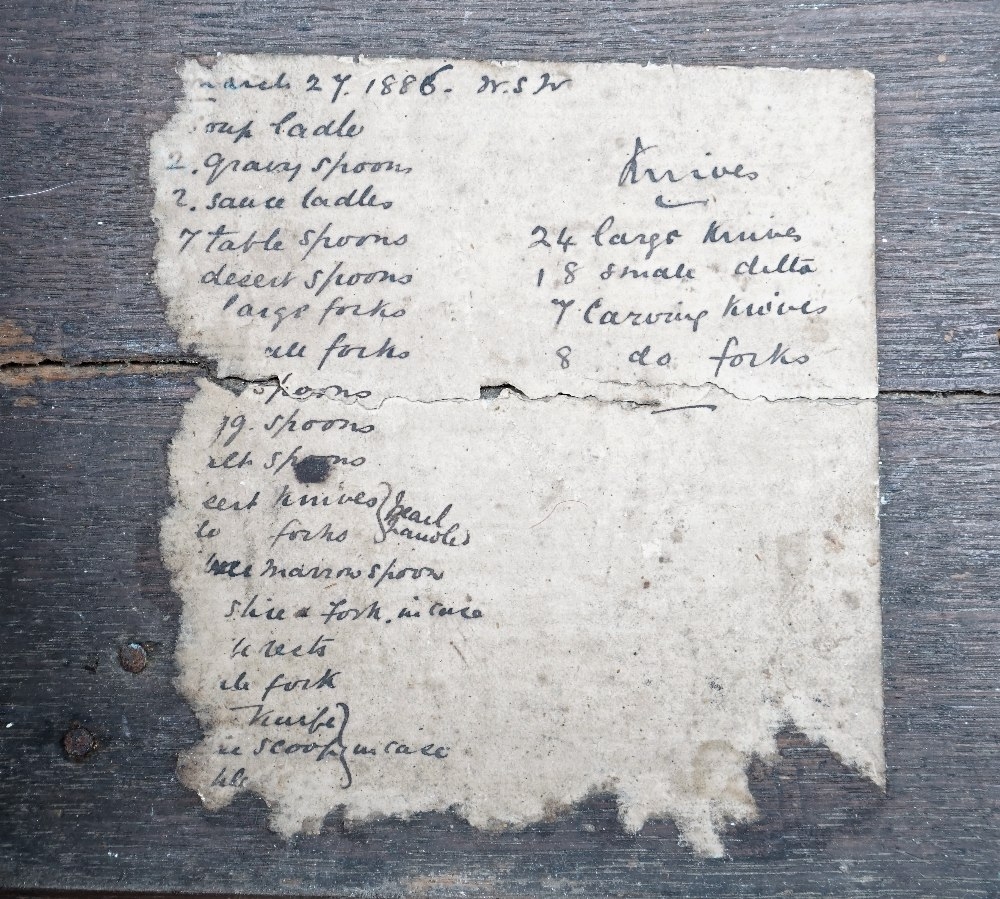 March 27. 1886. W.S.W
oup ladle
2. gravy spoons
2. sauce ladles
7 table spoons
desert spoons
large forks
all forks
spoons
gg. spoons
alt spoons
sert Knives } Pearl
do forks } handles
marrow spoon
slice & Fork. in case
rests
le fork
Knife }
scoop } in case
Knives
24 large Knives
18 smale ditto
7 Carving Knives
8 do forks